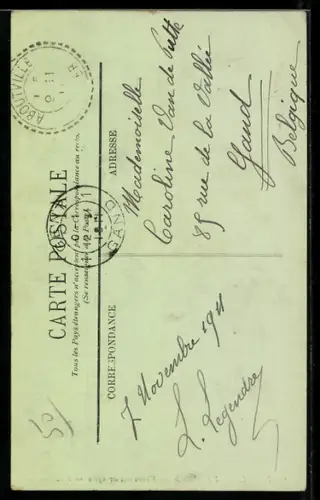 CARTE POSTALE
Tous les Pays étrangers n'acceptent pas la Correspondance au recto.
CORRESPONDANCE
ADRESSE
7 Novembre 1911
L. Legendre
Mademoiselle
Caroline Van de
85 rue de la Vallée
Gand
Belgique
GAND
50